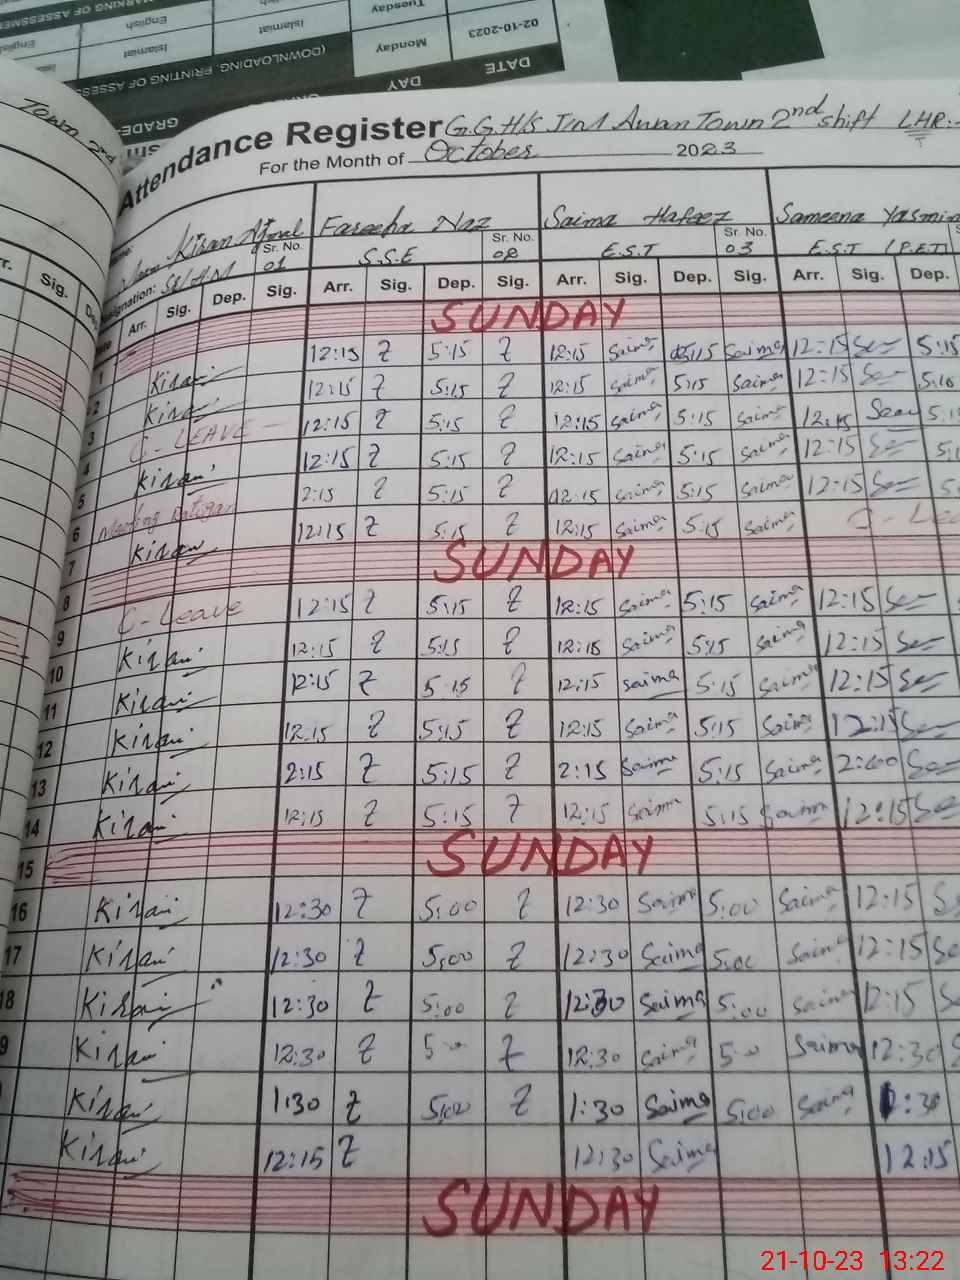 02-10-2023 Monday Islamiat English
Tuesday Islamiat
DATE DAY (DOWNLOADING, PRINTING OF ASSESS
GRADE-
Town 2nd
Attendance Register G.G.H/S Town 2nd shift LHR.
For the Month of October 2023
Kiran Fareeha Naz Saima Hafeez Sameena Yasmin
Sr. No. 01 S.S.E Sr. No. 02 E.S.T Sr. No. 03 E.S.T (P.E.T)
Sig. Arr. Sig. Dep. Sig. Arr. Sig. Dep. Sig. Arr. Sig. Dep. Sig. Arr. Sig. Dep.
1 SUNDAY
2 Kiran 12:15 Z 5:15 Z 12:15 Saima 5:15 Saima 12:15 5:15
3 Kiran 12:15 Z 5:15 Z 12:15 Saima 5:15 Saima 12:15
4 C-LEAVE 12:15 Z 5:15 Z 12:15 Saima 5:15 Saima 12:15
5 Kiran 12:15 Z 5:15 Z 12:15 Saima 5:15 Saima 12:15
6 Meeting 2:15 Z 5:15 Z 12:15 Saima 5:15 Saima 12:15
7 Kiran 12:15 Z 5:15 Z 12:15 Saima 5:15 Saima C-Lea
8 SUNDAY
9 C-Leave 12:15 Z 5:15 Z 12:15 Saima 5:15 Saima 12:15
10 Kiran 12:15 Z 5:15 Z 12:15 Saima 5:15 Saima 12:15
11 Kiran 12:15 Z 5:15 Z 12:15 Saima 5:15 Saima 12:15
12 Kiran 12:15 Z 5:15 Z 12:15 Saima 5:15 Saima 12:15
13 Kiran 2:15 Z 5:15 Z 2:15 Saima 5:15 Saima 2:00
14 Kiran 12:15 Z 5:15 Z 12:15 Saima 5:15 Saima 12:15
15 SUNDAY
16 Kiran 12:30 Z 5:00 Z 12:30 Saima 5:00 Saima 12:15
17 Kiran 12:30 Z 5:00 Z 12:30 Saima 5:00 Saima 12:15
18 Kiran 12:30 Z 5:00 Z 12:30 Saima 5:00 Saima 12:15
9 Kiran 12:30 Z 5:00 Z 12:30 Saima 5:00 Saima 12:30
Kiran 1:30 Z 5:00 Z 1:30 Saima 5:00 Saima 1:30
Kiran 12:15 Z 12:30 Saima 12:15
SUNDAY
21-10-23 13:22